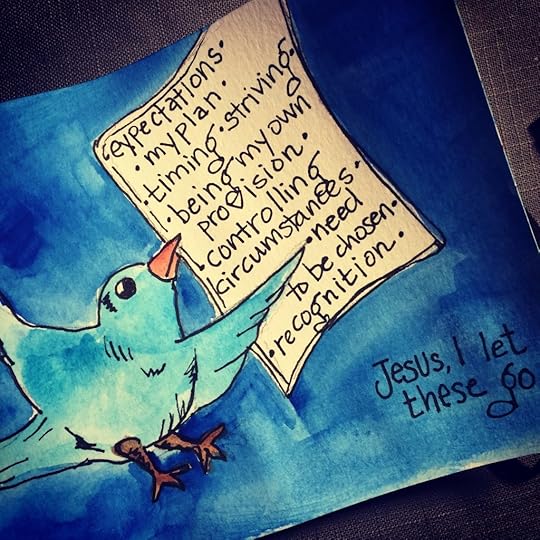 •expectations•
•my plan•
•timing•striving•
being my own
provision•
•controlling
circumstances•
•need
to be chosen•
•recognition•
Jesus, I let
these go